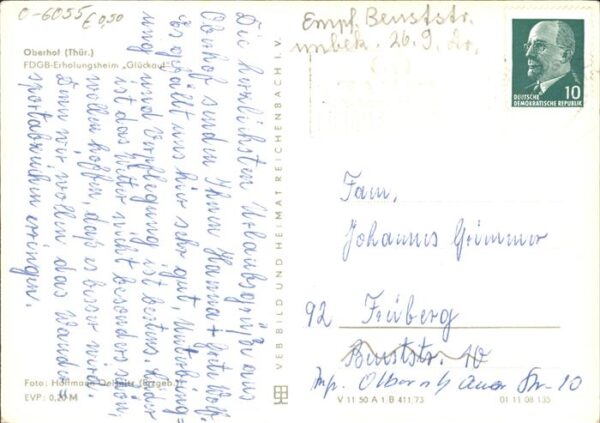 0-6055
€ 0,50
Oberhof (Thür.)
FDGB-Erholungsheim „Glückauf"
Die herzlichsten Urlaubsgrüße aus
Oberhof senden Ihnen Hanna +
Es gefällt uns hier sehr gut, Unterbring=
ung und Verpflegung ist bestens, leider
ist das Wetter nicht besonders schön,
wollen hoffen, daß es besser wird.
Denn wir wollen das Wander=
sportabzeichen erringen.
Foto: Hoffmann Oelsnitz (Erzgeb.)
EVP: 0,20 M
VEB BILD UND HEIMAT REICHENBACH I. V.
Empf. Beuststr.
unbek. 26.9.
DEUTSCHE
DEMOKRATISCHE REPUBLIK
10
Fam.
Johannes Grimmer
92 Freiberg
Beuststr. 10
Str. 10
V 11 50 A 1 B 411/73
01 11 08 135